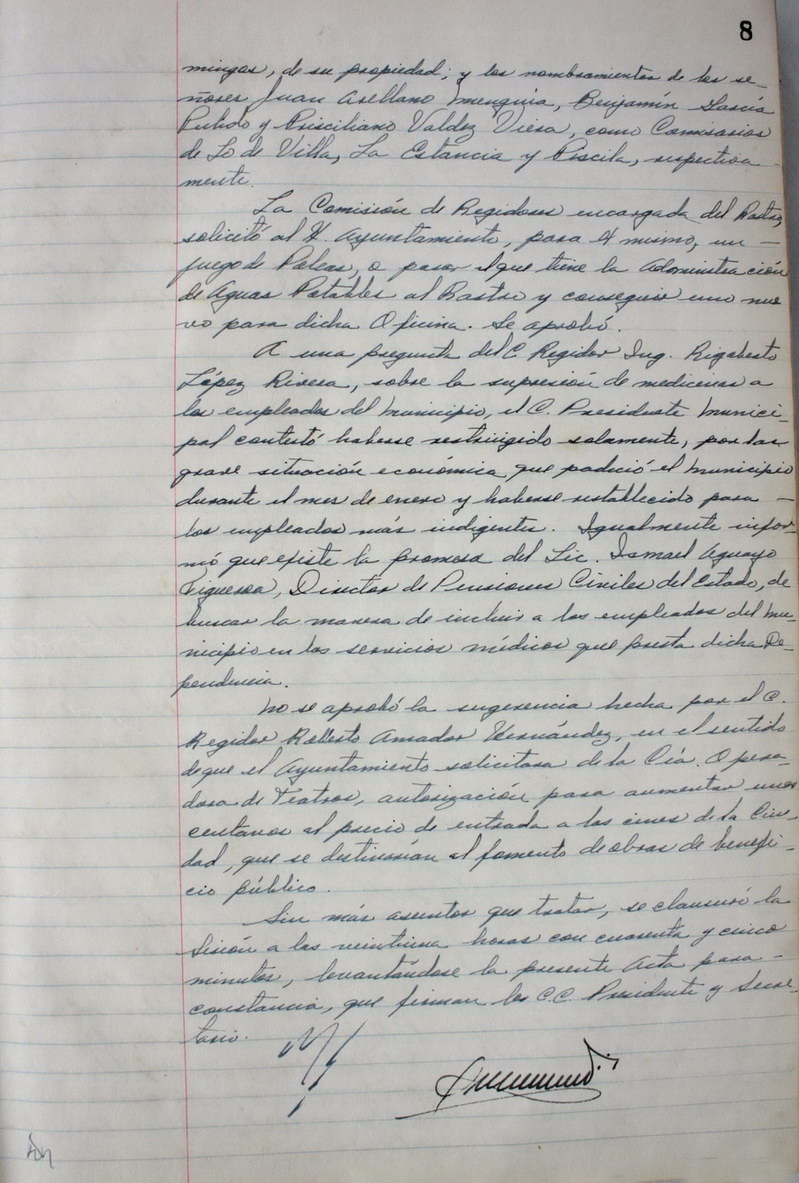 8
mingos, de su propiedad; y los nombramientos de los se-
ñores Juan Arellano Munguía, Benjamín García
Pulido y Prisciliano Valdez Viera, como Comisarios
de Lo de Villa, La Estancia y Piscila, respectiva-
mente.
La Comisión de Regidores encargada del Rastro,
solicitó al H. Ayuntamiento, para el mismo, un -
juego de Poleas, o pasar el que tiene la Administración
de Aguas Potables al Rastro y conseguir uno nue
vo para dicha Oficina. Se aprobó.
A una pregunta del C. Regidor Ing. Rigoberto
López Rivera, sobre la supresión de medicinas a
los empleados del Municipio, el C. Presidente Munici-
pal contestó haberse restringido solamente, por la
grave situación económica que padeció el Municipio
durante el mes de enero y haberse restablecido para -
los empleados más indigentes. Igualmente infor-
mó que existe la promesa del Lic. Ismael Aguayo
Figueroa, Director de Pensiones Civiles del Estado, de
buscar la manera de incluir a los empleados del Mu-
nicipio en los servicios médicos que presta dicha De-
pendencia.
No se aprobó la sugerencia hecha por el C.
Regidor Roberto Amador Hernández, en el sentido
de que el Ayuntamiento solicitara de la Cía. Opera-
dora de Teatros, autorización para aumentar unos
centavos al precio de entrada a los cines de la Ciu-
dad, que se destinarían al fomento de obras de benefi-
cio público.
Sin más asuntos que tratar, se clausuró la
Sesión a las veintiuna horas con cuarenta y cinco
minutos, levantándose la presente Acta para -
constancia, que firman los C.C. Presidente y Secre-
tario.